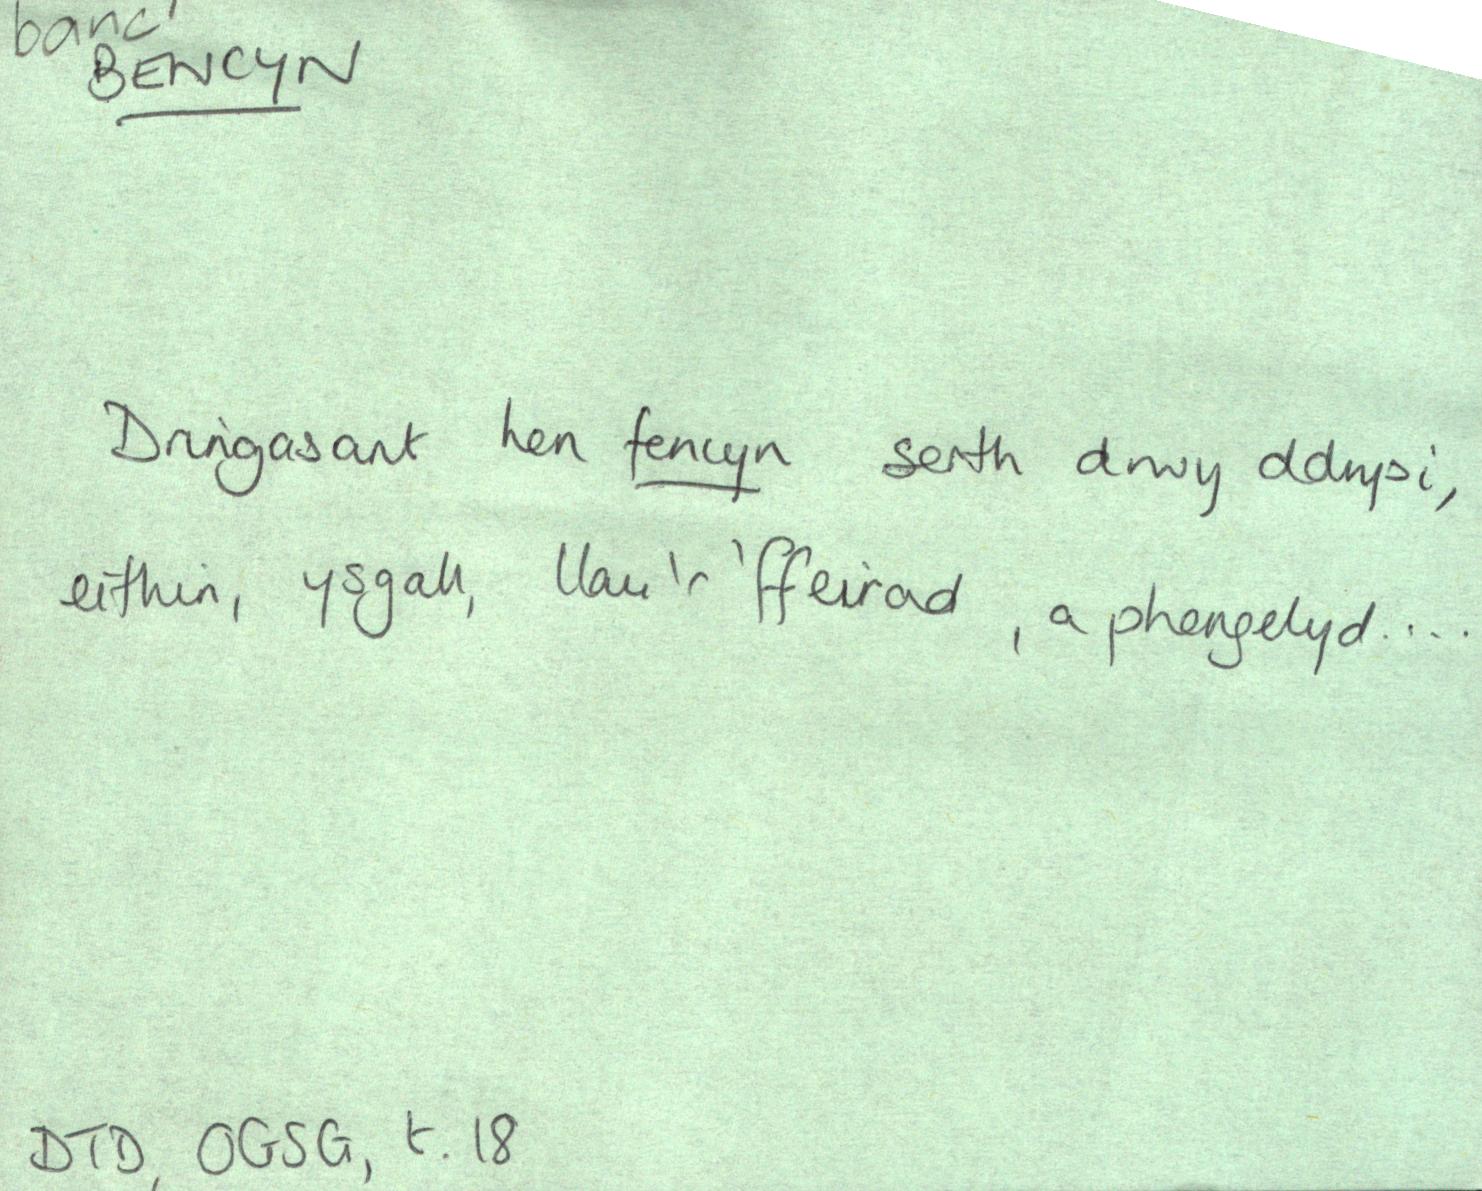 banc'
BENCYN
Dringasant hen fencyn serth drwy ddrysi,
eithin, ysgall, llau'r 'ffeirad, a phengelyd....
DTD, OGSG, t. 18